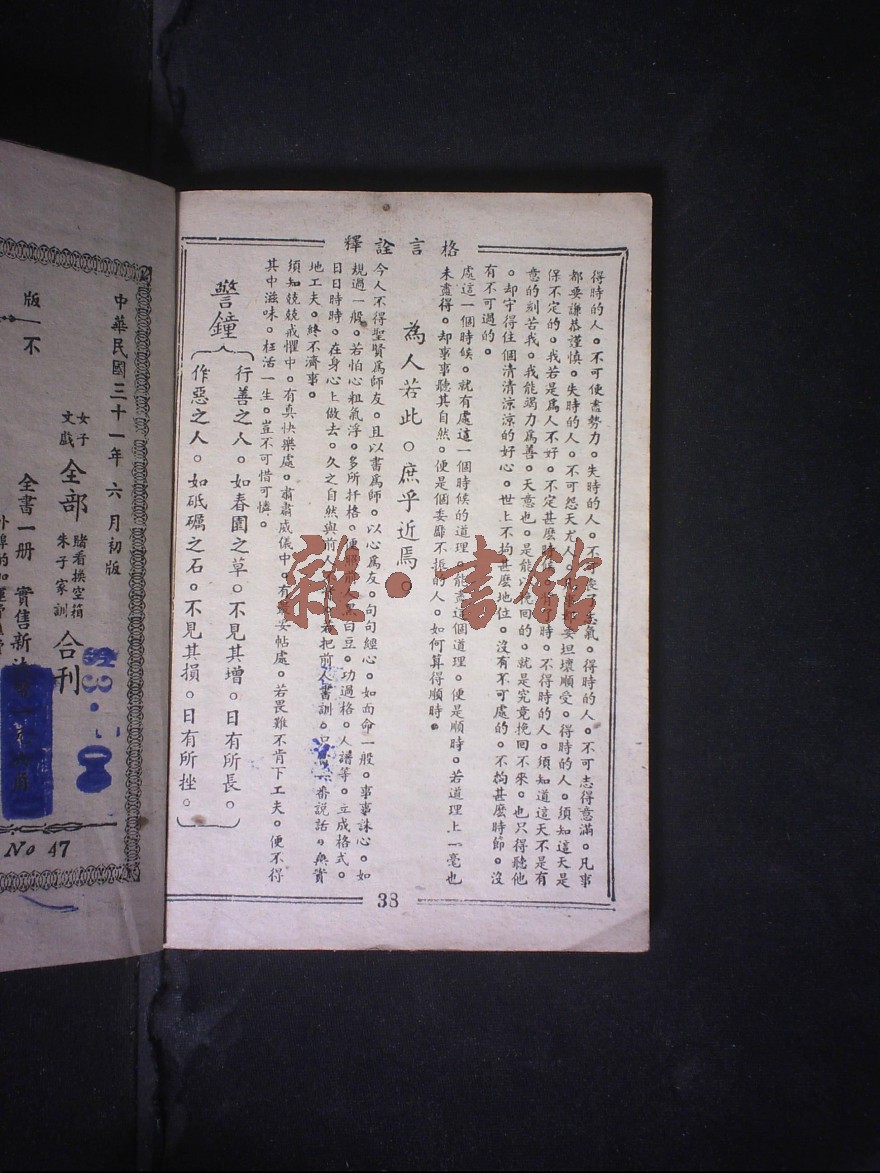 格言詮釋
得時的人。不可便盡勢力。失時的人。不可喪了志氣。得時的人。不可志得意滿。凡事
都要謙恭謹慎。失時的人。不可怨天尤人。妄坦壞順受。得時的人。須知這天是
保不定的。我若是爲人不好。不定甚麼時時。不得時的人。須知道這天不是有
意的刻苦我。我能竭力爲善。天意也。是能挽回的。就是究竟挽回不來。也只得聽他
。却守得住個清清涼涼的好心。世上不拘甚麼地位。沒有不可處的。不拘甚麼時節。沒
有不可過的。
處這一個時候。就有處這一個時候的道理。能盡這個道理。便是順時。若道理上一毫也
未盡得。却事事聽其自然。便是個委靡不振的人。如何算得順時。
為人若此。庶乎近焉。
今人不得聖賢爲師友。且以書爲師。以心爲友。句句經心。如面命一般。事事誅心。如
規過一般。若怕心粗氣浮。多所扞格。豆。功過格。人譜等。立成格式。
日日時時。在身心上做去。久之自然與前人把前人書訓。一番說話。與實
地工夫。終不濟事。
須知兢兢戒懼中。有真快樂處。肅肅威儀中。有妥帖處。若畏難不肯下工夫。便不得
其中滋味。枉活一生。豈不可惜可憐。
警鐘
行善之人。如春園之草。不見其增。日有所長。
作惡之人。如砥礪之石。不見其損。日有所挫。
38
雜·書館
中華民國三十一年六月初版
版
不
女子文戲 全部 賭看換空箱 朱子家訓 合刊
全書一册 實售新法
No 47